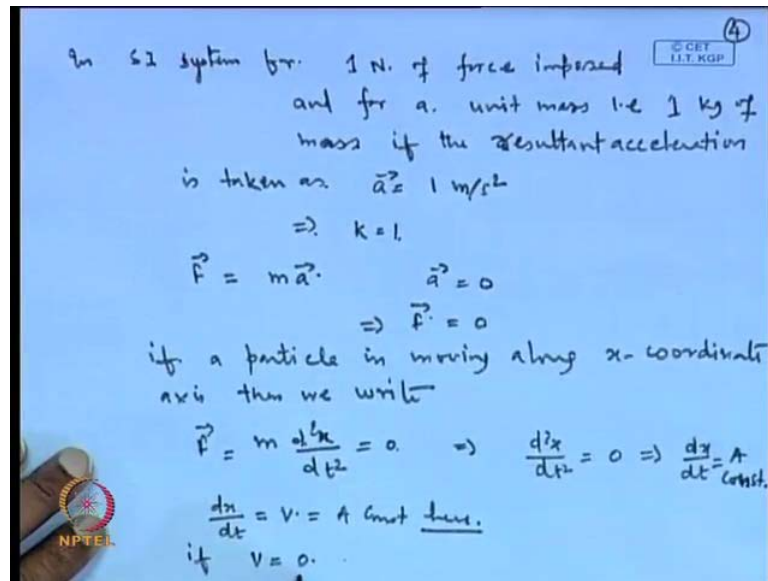 ④
© CET
I.I.T. KGP
In SI system for. 1 N. of force imposed
and for a. unit mass i.e 1 kg of
mass if the resultant acceleration
is taken as. a⃗ = 1 m/s²
=> k = 1.
F⃗ = m a⃗. a⃗ = 0
=> F⃗. = 0
if a particle in moving along x-coordinate
axis then we write
F⃗ = m d²x/dt² = 0. => d²x/dt² = 0 => dx/dt = A const.
dx/dt = V. = A const here.
if V = 0.
NPTEL